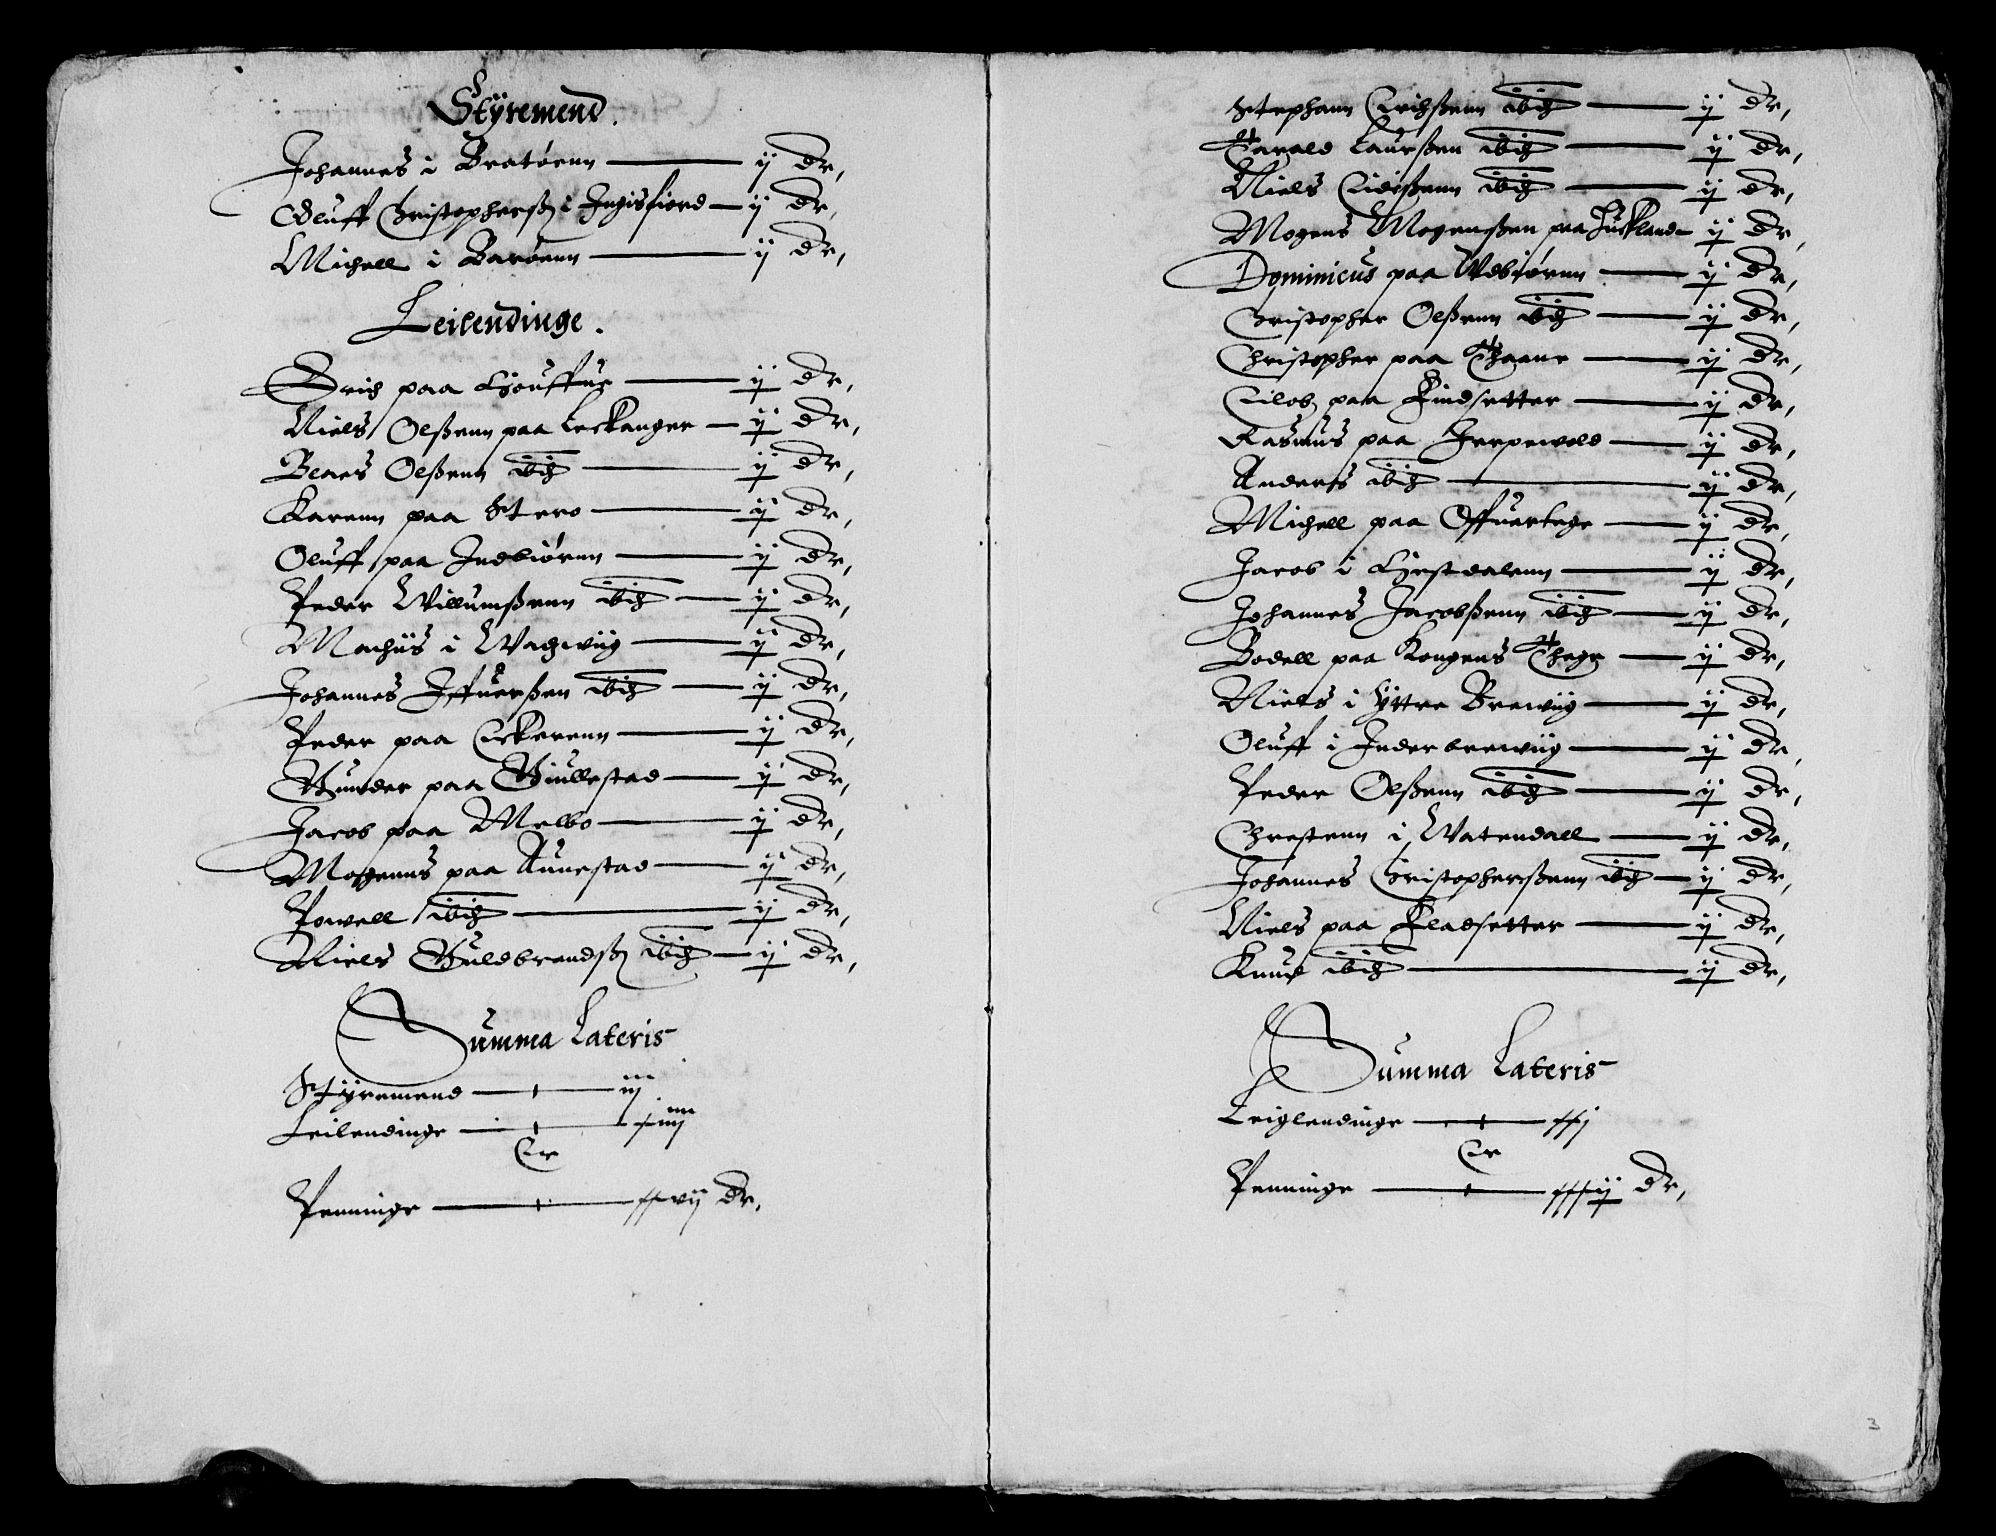 Styremend.
Johannes i Bratørenn — ij dr,
Oluff Christophersß i Ingisfiord — ij dr,
Michell i Barøenn — ij dr,
Leilendinge.
Erich paa — ij dr,
Niels Olßenn paa Leckanger — ij dr,
Claes Olßenn ibid — ij dr,
Karenn paa Stero — ij dr,
Oluff paa Indbiørnn — ij dr,
Peder Willumßenn ibid — ij dr,
Machiis i Wadzwiig — ij dr,
Johannes Iffuerßen ibid — ij dr,
Peder paa Eckerenn — ij dr,
Gunder paa Giullestad — ij dr,
Jacob paa Melbo — ij dr,
Mogenns paa Aunestad — ij dr,
Powell ibid — ij dr,
Niels Guldbrandß ibid — ij dr,
Summa Lateris
Styremend — iij
Leilendinge — xiiij
Er
Penninge — xxxvij dr,
Stephann Erichßenn ibid — ij dr,
Harald Laurßen ibid — ij dr,
Niels Eidißenn ibid — ij dr,
Mogens Mogenßen paa Huckland — ij dr,
Dominicus paa Udbiørnn — ij dr,
Christopher Olßenn ibid — ij dr,
Christopher paa Haane — ij dr,
Eilob paa Findsetter — ij dr,
Rasmus paa Jerpewold — ij dr,
Anders ibid — ij dr,
Michell paa Offuertege — ij dr,
Jacob i Hiestdalenn — ij dr,
Johannes Jacobßenn ibid — ij dr,
Bodell paa Kongens Hege — ij dr,
Niels i Yttre Brewiig — ij dr,
Oluff i Inderbrewiig — ij dr,
Peder Olßenn ibid — ij dr,
Chrestenn i Watendall — ij dr,
Johannes Christopherßenn ibid — ij dr,
Niels paa Fladsetter — ij dr,
Knud ibid — ij dr,
Summa Lateris
Leiglendinge — xxj
Er
Penninge — xxxxij dr,
3